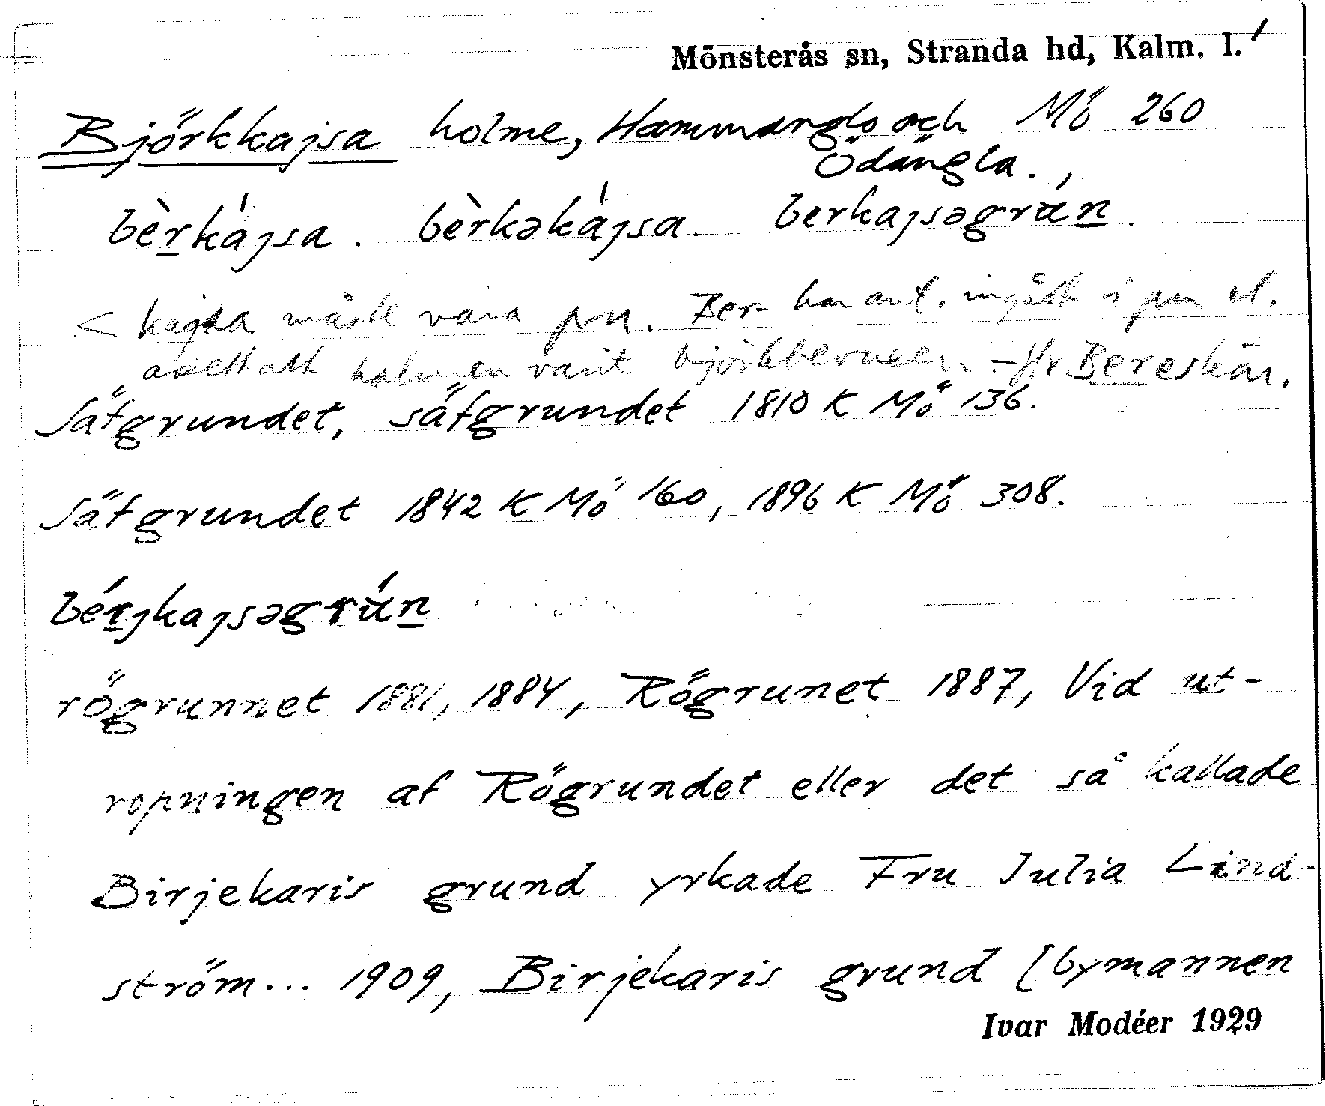 Mönsterås sn, Stranda hd, Kalm. l. 1
Björkkajsa holme, Hammarglo och Mö 260
Ödängla.
bèrká̀jsa. bèrkəkájsa berkajsəgrún.
< kajsa måste vara pn. Ber- har ant. ingått i pn el.
avsett att holmen varit björkbevuxen. - Jfr Bereskär.
Säfgrundet, säfgrundet 1810 K Mö 136.
Säfgrundet 1842 K Mö 160, 1896 K Mö 308.
bérjkajsəgrún
rögrunnet 1881, 1884, Rögrunet 1887, Vid ut-
ropningen af Rögrundet eller det så kallade
Birjekaris grund yrkade Fru Julia Lind-
ström... 1909, Birjekaris grund [bymannen
Ivar Modéer 1929